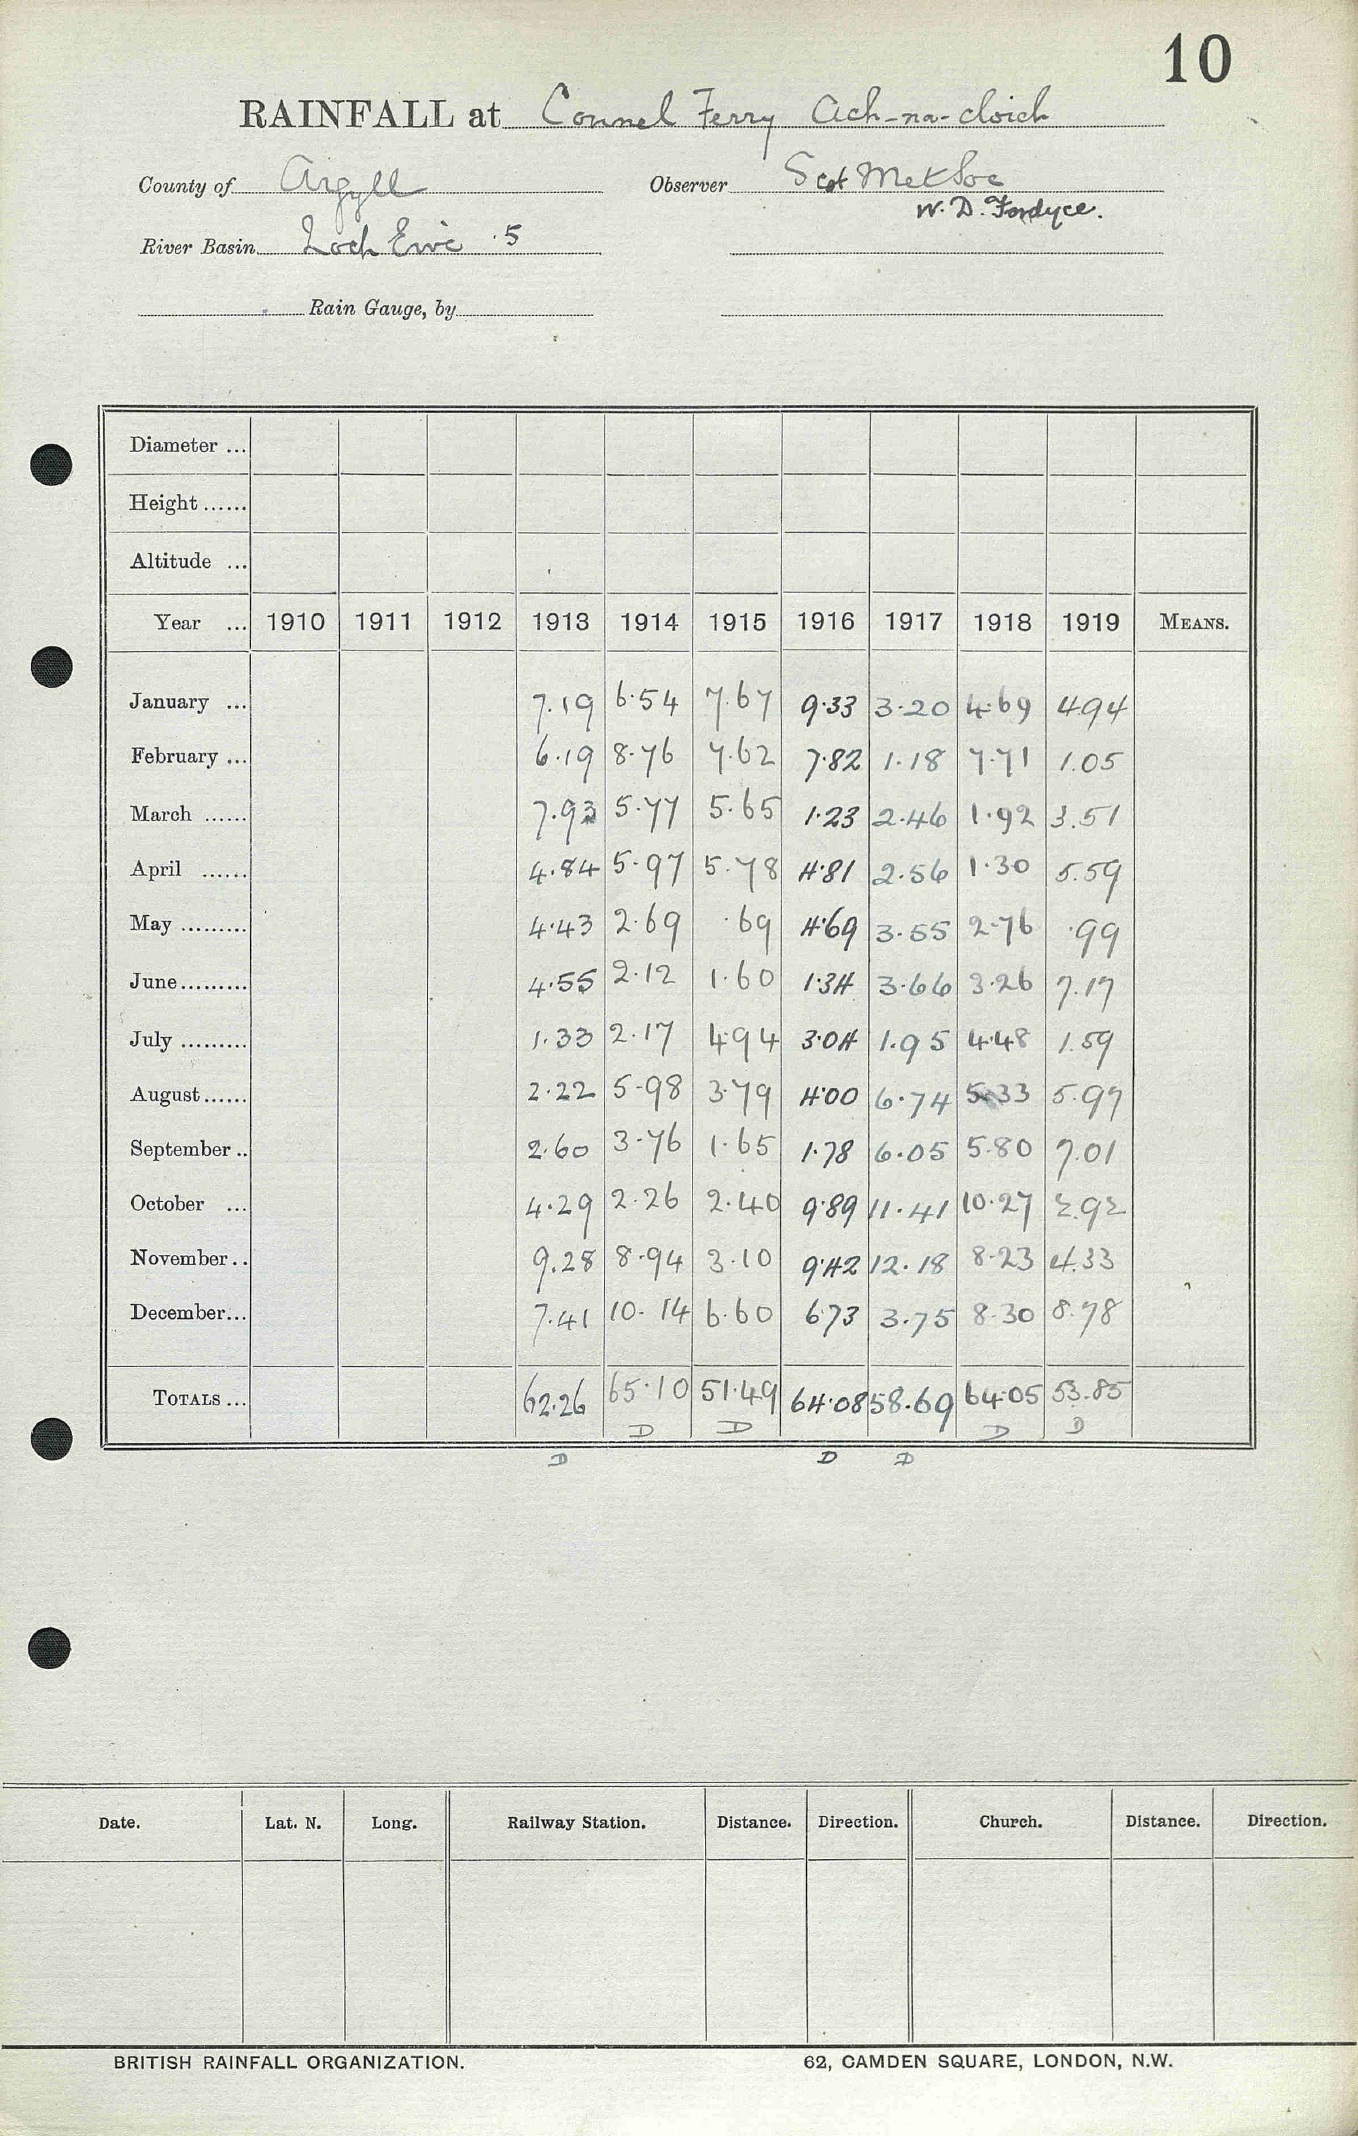 10
RAINFALL at Connel Ferry Ach-na-cloich
County of Argyll Observer Scot Met Soc
W. D. Fordyce.
River Basin Loch Etive 5
Rain Gauge, by
Diameter ...
Height ......
Altitude ...
Year ... 1910 1911 1912 1913 1914 1915 1916 1917 1918 1919 MEANS.
January ... 7.19 6.54 7.67 9.33 3.20 4.69 4.94
February ... 6.19 8.76 7.62 7.82 1.18 7.71 1.05
March ...... 7.93 5.77 5.65 1.23 2.46 1.92 3.51
April ...... 4.84 5.97 5.78 4.81 2.56 1.30 5.59
May ......... 4.43 2.69 .69 4.69 3.55 2.76 .99
June ......... 4.55 2.12 1.60 1.34 3.66 3.26 7.17
July ......... 1.33 2.17 4.94 3.04 1.95 4.48 1.59
August ...... 2.22 5.98 3.79 4.00 6.74 5.33 5.97
September .. 2.60 3.76 1.65 1.78 6.05 5.80 7.01
October ... 4.29 2.26 2.40 9.89 11.41 10.27 2.92
November .. 9.28 8.94 3.10 9.42 12.18 8.23 4.33
December ... 7.41 10.14 6.60 6.73 3.75 8.30 8.78
TOTALS ... 62.26 65.10 51.49 64.08 58.69 64.05 53.85
D D D D
D D D
Date. Lat. N. Long. Railway Station. Distance. Direction. Church. Distance. Direction.
BRITISH RAINFALL ORGANIZATION. 62, CAMDEN SQUARE, LONDON, N.W.